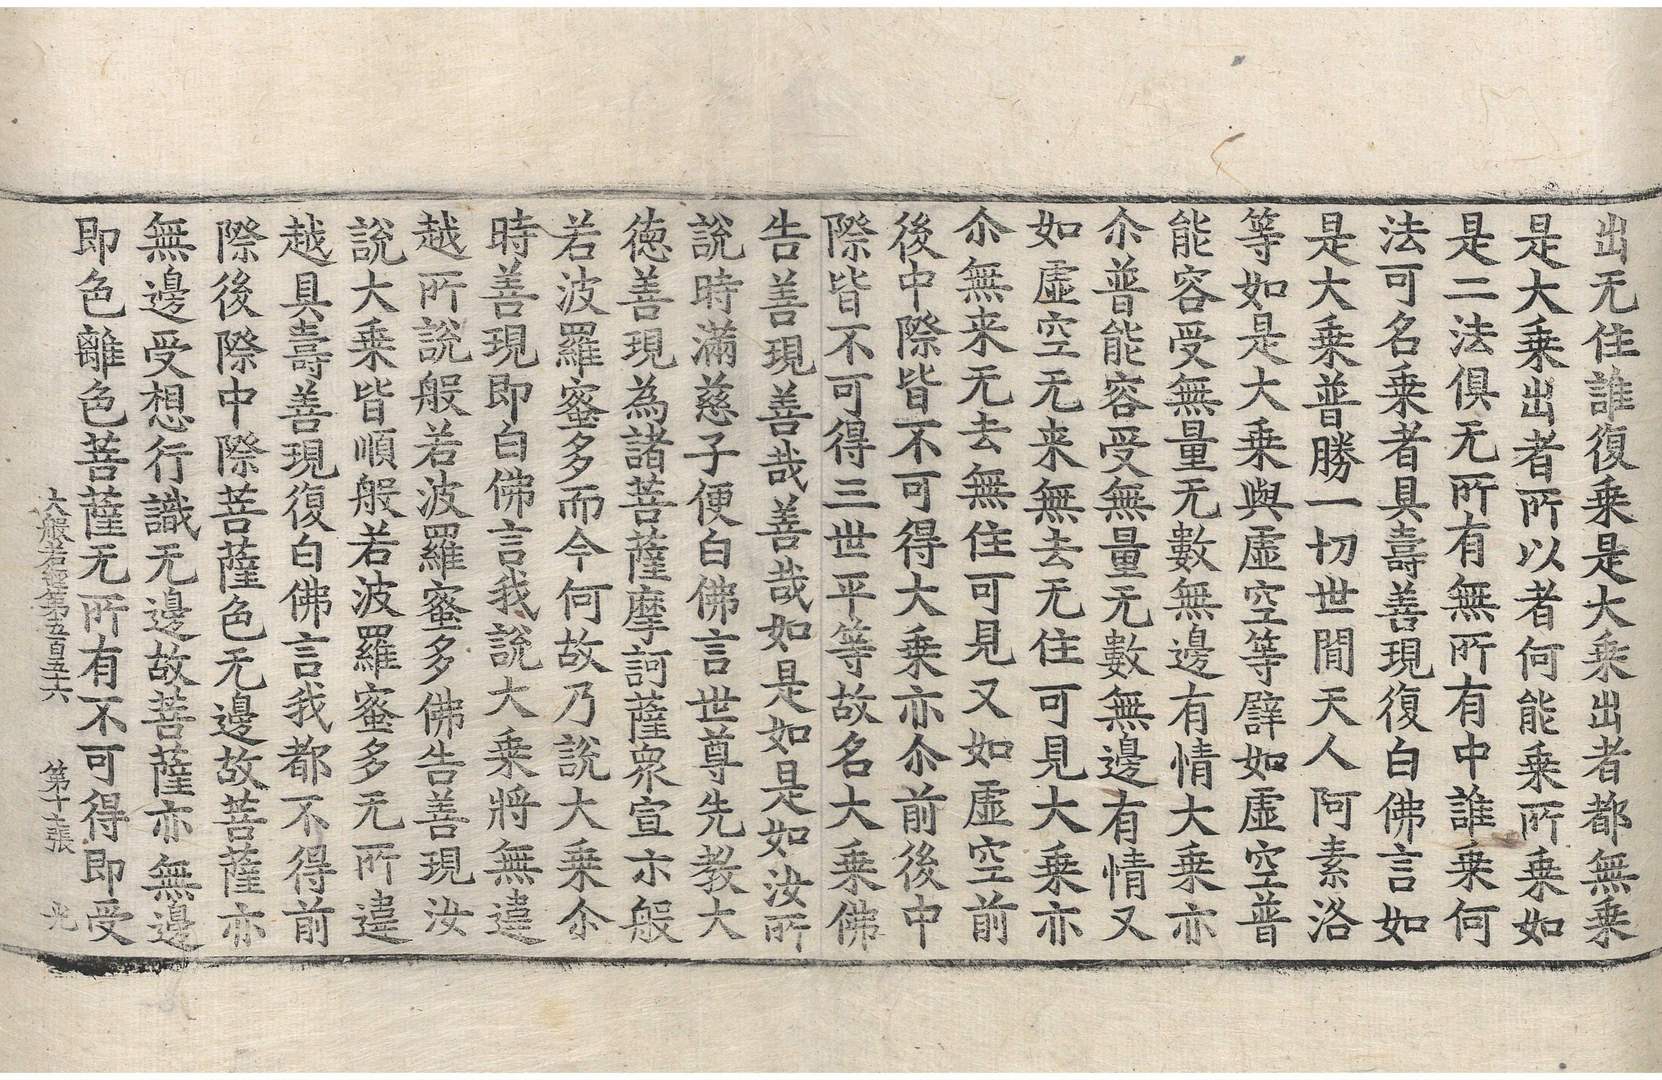 出无住誰復乗是大乗出者都無乗
是大乗出者所以者何能乗所乗如
是二法俱无所有無所有中誰乗何
法可名乗者具壽善現復白佛言如
是大乗普勝一切世間天人阿素洛
等如是大乗與虛空等譬如虛空普
能容受無量无數無邊有情大乗亦
尒普能容受無量无數無邊有情又
如虛空无来無去无住可見大乗亦
尒無来无去無住可見又如虛空前
後中際皆不可得大乗亦尒前後中
際皆不可得三世平等故名大乗佛
告善現善哉善哉如是如是如汝所
說時滿慈子便白佛言世尊先教大
徳善現為諸菩薩摩訶薩眾宣示般
若波羅蜜多而今何故乃說大乗尒
時善現即白佛言我說大乗將無違
越所說般若波羅蜜多佛告善現汝
說大乗皆順般若波羅蜜多无所違
越具壽善現復白佛言我都不得前
際後際中際菩薩色无邊故菩薩亦
無邊受想行識无邊故菩薩亦無邊
即色離色菩薩无所有不可得即受
大般若經第五百五十六 第十二張 光